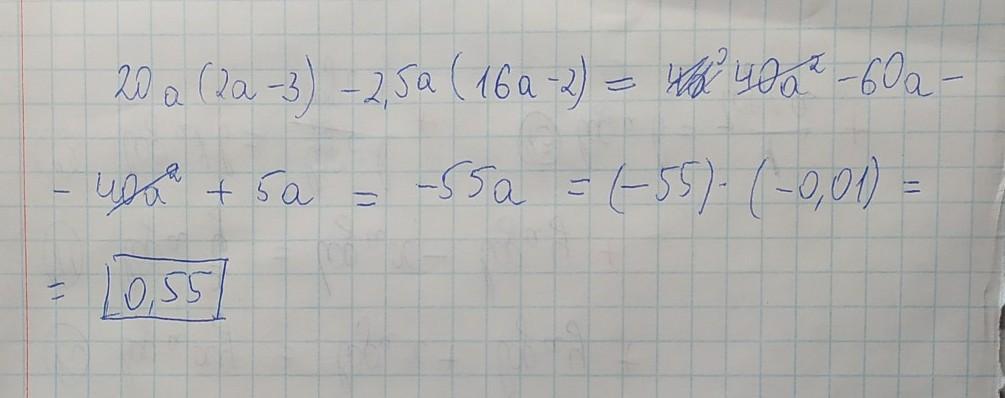 20a(2a-3) -2,5a(16a-2) = 40a² -60a -
- 40a² + 5a = -55a = (-55)·(-0,01) =
= 0,55